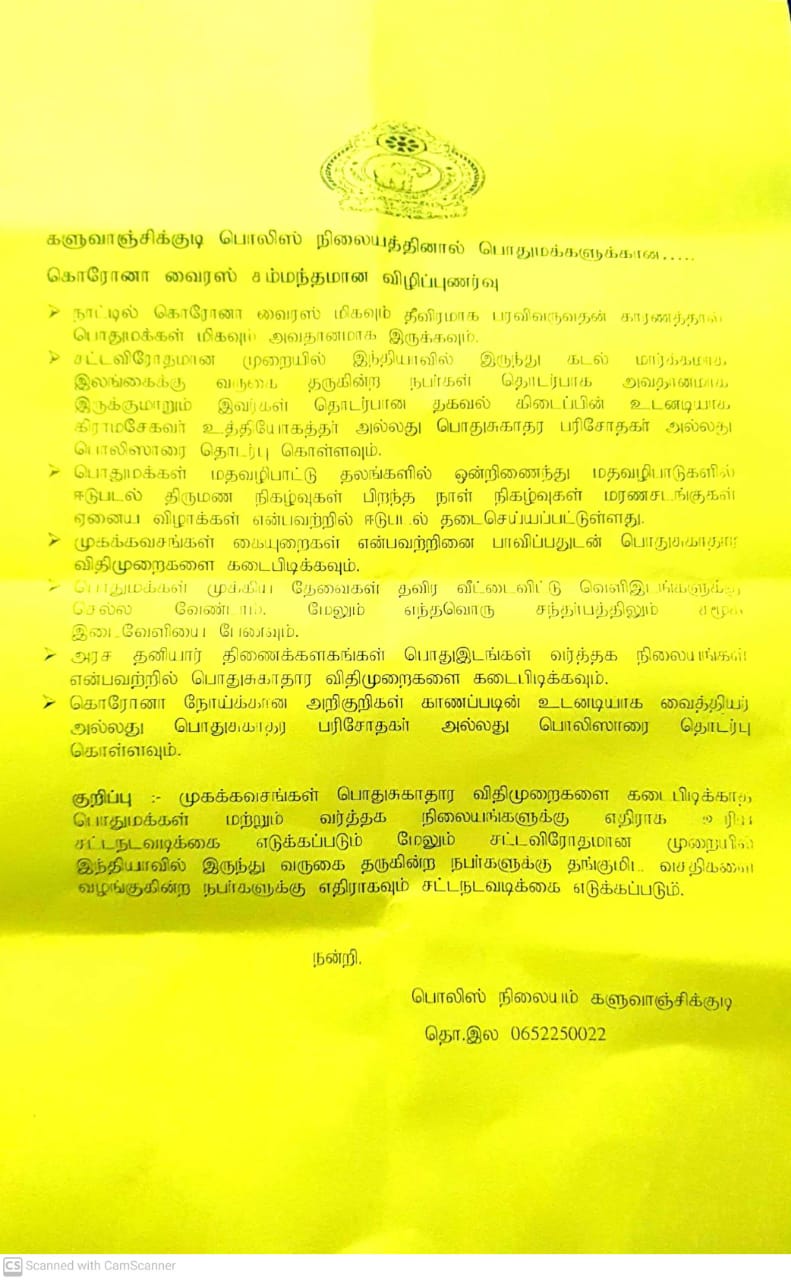 களுவாஞ்சிக்குடி பொலிஸ் நிலையத்தினால் பொதுமக்களுக்கான.....
கொரோனா வைரஸ் சம்மந்தமான விழிப்புணர்வு
➢ நாட்டில் கொரோனா வைரஸ் மிகவும் தீவிரமாக பரவிவருவதன் காரணத்தால்
பொதுமக்கள் மிகவும் அவதானமாக இருக்கவும்.
➢ சட்டவிரோதமான முறையில் இந்தியாவில் இருந்து கடல் மார்க்கமாக
இலங்கைக்கு வருகை தருகின்ற நபர்கள் தொடர்பாக அவதானமாக
இருக்குமாறும் இவர்கள் தொடர்பான தகவல் கிடைப்பின் உடனடியாக
கிராமசேகவர் உத்தியோகத்தர் அல்லது பொதுசுகாதர பரிசோதகர் அல்லது
பொலிஸாரை தொடர்பு கொள்ளவும்.
➢ பொதுமக்கள் மதவழிபாட்டு தலங்களில் ஒன்றிணைந்து மதவழிபாடுகளில்
ஈடுபடல் திருமண நிகழ்வுகள் பிறந்த நாள் நிகழ்வுகள் மரணசடங்குகள்
ஏனைய விழாக்கள் என்பவற்றில் ஈடுபடல் தடைசெய்யப்பட்டுள்ளது.
➢ முகக்கவசங்கள் கையுறைகள் என்பவற்றினை பாவிப்பதுடன் பொதுசுகாதார
விதிமுறைகளை கடைபிடிக்கவும்.
➢ பொதுமக்கள் முக்கிய தேவைகள் தவிர வீட்டைவிட்டு வெளிஇடங்களுக்கு
செல்ல வேண்டாம். மேலும் எந்தவொரு சந்தர்பத்திலும் சமூக
இடைவேளியை பேணவும்.
➢ அரச தனியார் திணைக்களகங்கள் பொதுஇடங்கள் வர்த்தக நிலையங்கள்
என்பவற்றில் பொதுசுகாதார விதிமுறைகளை கடைபிடிக்கவும்.
➢ கொரோனா நோய்க்கான அறிகுறிகள் காணப்படின் உடனடியாக வைத்தியர்
அல்லது பொதுசுகாதர பரிசோதகர் அல்லது பொலிஸாரை தொடர்பு
கொள்ளவும்.
குறிப்பு :- முகக்கவசங்கள் பொதுசுகாதார விதிமுறைகளை கடைபிடிக்காத
பொதுமக்கள் மற்றும் வர்த்தக நிலையங்களுக்கு எதிராக உரிய
சட்டநடவடிக்கை எடுக்கப்படும் மேலும் சட்டவிரோதமான முறையில்
இந்தியாவில் இருந்து வருகை தருகின்ற நபர்களுக்கு தங்குமிட வசதிகளை
வழங்குகின்ற நபர்களுக்கு எதிராகவும் சட்டநடவடிக்கை எடுக்கப்படும்.
நன்றி.
பொலிஸ் நிலையம் களுவாஞ்சிக்குடி
தொ.இல 0652250022
CS Scanned with CamScanner